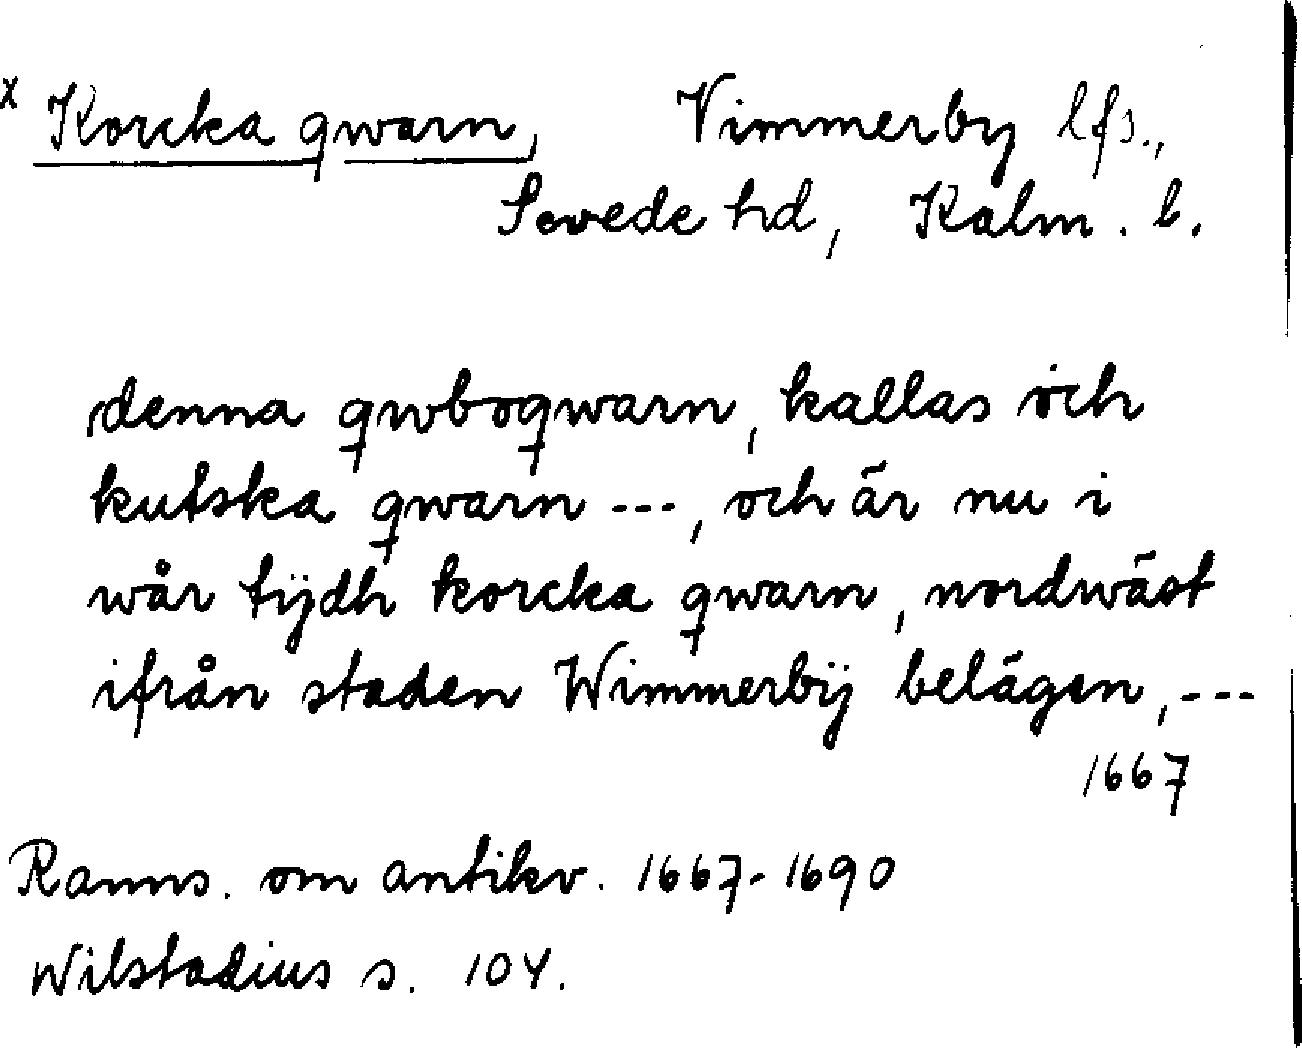 x Korcka qwarn, Vimmerby lfs.,
Sevede hd, Kalm. l.
denna qwboqwarn, kallas och
kutska qwarn ---, och är nu i
wår tÿdh korcka qwarn, nordwäst
ifrån staden Wimmerbÿ belägen, ---
1667
Ranns. om antikv. 1667-1690
Wilstadius s. 104.